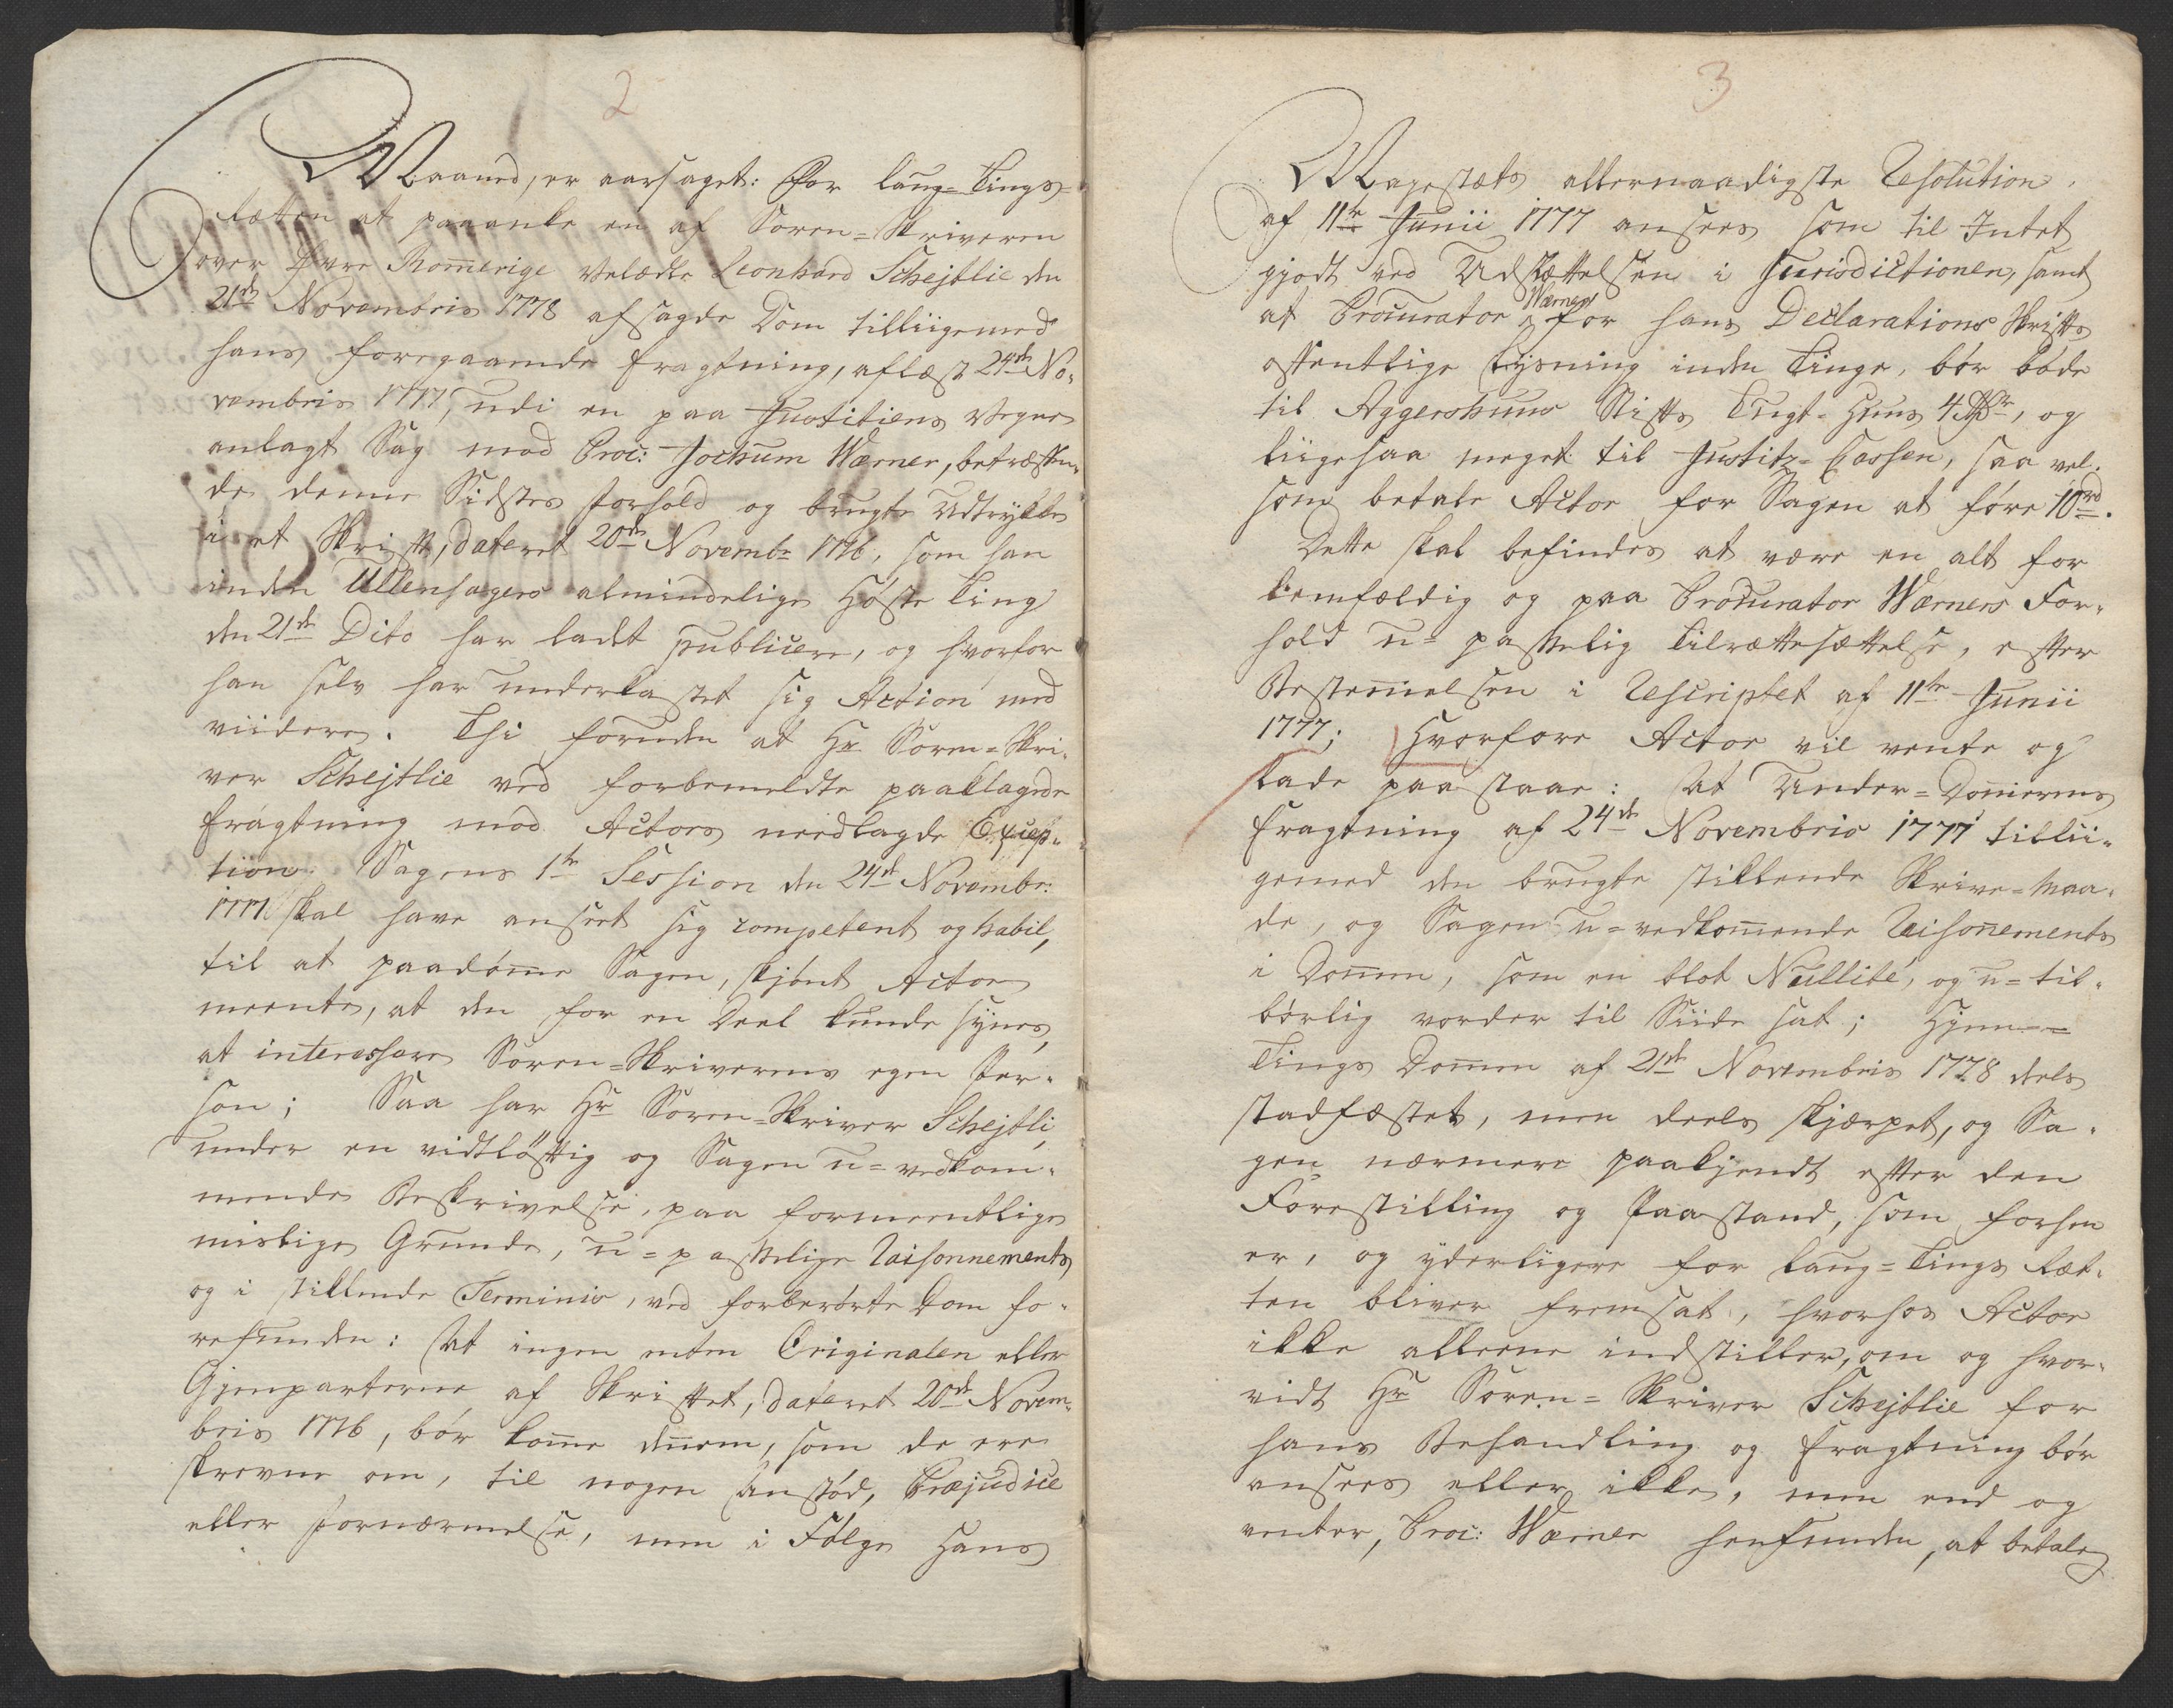 2
Maaned, er aarsaget: For Laug-Tings-
Retten at paaanke en af Soren-Skriveren
over Øvre Romerige Velædle Leonhard Schejtlie den
21de Novembris 1778 afsagde Dom tilliigemed
hans foregaaende Fragtning, aflæst 24de No-
vembris 1777, udi en paa Justitiens Vegne
anlagt Sag mod Proc: Jochum Wærner, betræffen-
de denne Sidstes Forhold og brugte Udtrykke
i et Skrift, dateret 20de Novembr 1776, som han
inden Ullensagers almindelige Høste Ting
den 21de Dito har ladt publicere, og hvorfor
han selv har underkastet sig Action med
viidere. Thi foruden at Hr Soren-Skri-
ver Schejtlie ved forbemeldte paaklagede
Fragtning mod Actors nedlagde Excep-
tion Sagens 1te Session den 24de Novembr:
1777 skal have anseet sig competent og habil,
til at paadømme Sagen, skjønt Actor
meente, at den for en Deel kunde synes,
at interessere Soren-Skriverens egen Per-
son; Saa har Hr Soren-Skriver Schejtli,
under en vidtløftig og Sagen u-vedkom-
mende Beskrivelse, paa formeentlige
mislige Grunde, u-passelige Raisonnements
og i stiklende Terminis, ved forberørte Dom fo-
refunden: At ingen enten Originalen eller
Gjenparterne af Skriftet, dateret 20de Novem-
bris 1776, bør komme dennem, som de ere
skrevne om, til nogen Anstød, Præjudice
eller Fornærmelse, men i Følge Hans
3
Majestæts allernaadigste Resolution
af 11te Junii 1777 ansees som til Intet
gjort ved Udslættelsen i Jurisdictionen, samt
at Procurator Wærner for hans Declarations Skrifts
offentlige Lysning inden Tinge, bør bøde
til Aggershuus Stifts Tugt-Huus 4 Rdr, og
liigesaa meget til Justitz-Cassen, saa vel
som betale Actor for Sagen at føre 10rd.
Dette skal befindes at være en alt for
lemfældig og paa Procurator Wærners For-
hold u-passelig Tilrættesættelse, efter
Bestemelsen i Rescriptet af 11te Junii
1777; Hvorfore Actor vil vente og
lade paastaae: At Under-Domerens
Fragtning af 24de Novembris 1777 tillii-
gemed den brugte stiklende Skrive-Maa-
de, og Sagen u-vedkomende Raisonements
i Dommen, som en blot Nullité, og u-til-
børlig vorder til Siide sat; Hjemme-
Tings Dommen af 21de Novembris 1778 deels
stadfæstet, men deels skjærpet, og Sa-
gen nærmere paakjendt efter den
Forestilling og Paastand, som forhen
er, og yderligere for Laug-Tings Ret-
ten bliver fremsat, hvorhos Actor
ikke alleene indstiller, om og hvor-
vidt Hr Soren-Skriver Schejtlie for
hans Behandling og Fragtning bør
ansees eller ikke, men end og
venter, Proc: Wærner henfunden, at betale